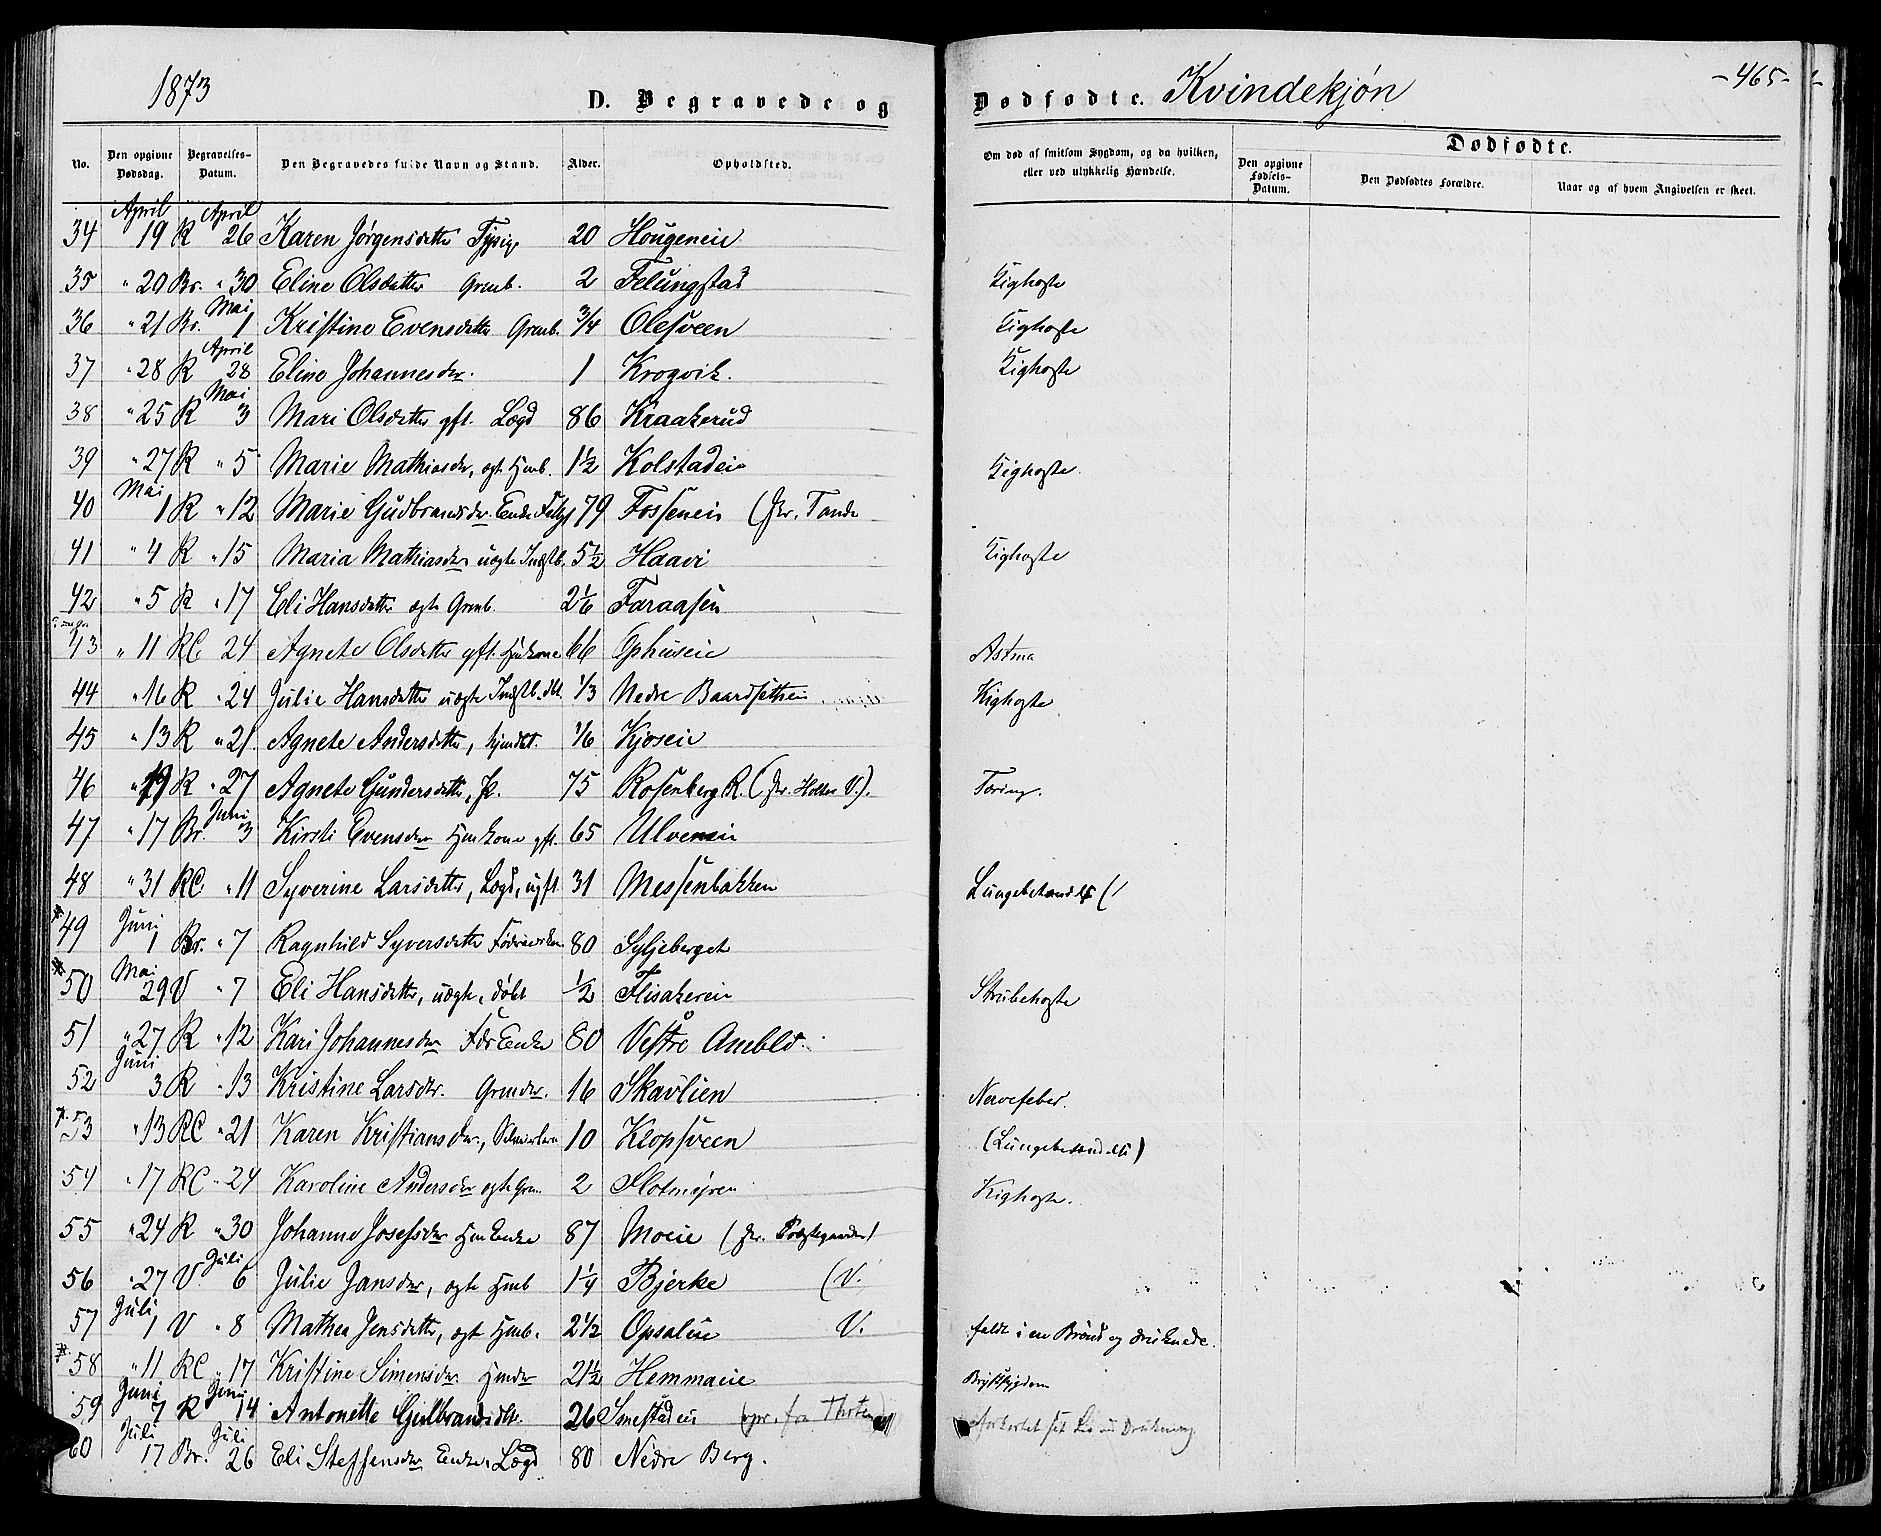 1873
D. Begravede og
Dødfødte. Kvindekjøn
-465-
No. Den opgivne Dødsdag. Begravelses-Datum. Den Begravedes fulde Navn og Stand. Alder. Opholdsted. Om død af smitsom Sygdom, og da hvilken, eller ved ulykkelig Hændelse. Dødfødte. Den opgivne Fødsels-Datum. Den Dødfødtes Forældre. Naar og af hvem Angivelsen er skeet.
34 April 19 R April 26 Karen Jørgensdatter 20 Hougeneie
35 " 20 Br. " 30 Eline Olsdatter Grmb. 2 Felungstad Kighoste
36 " 21 Br. Mai 1 Kristine Evensdatter Grmb. 3/4 Olesveen Kighoste
37 " 28 R April 28 Eline Johannesdtr. 1 Krogvik. Kighoste
38 " 25 R Mai 3 Mari Olsdatter gft. Lægd 86 Kraakerud
39 " 27 R " 5 Marie Mathiasdtr, ægte Hmb. 1½ Kolstadeie Kighoste
40 Mai 1 R " 12 Marie Gudbrandsdtr. Enke 79 Fosseneie (fr. Tande
41 " 4 R " 15 Maria Mathiasdtr uægte Indstb. 5½ Haavi Kighoste
42 " 5 R " 17 Eli Hansdatter ægte Grmb. 2 1/6 Faraasen
43 " 11 RC 24 Agnete Olsdatter gft. Hmkone 66 Ophuseie Astma
44 " 16 R " 24 Julie Hansdatter uægte Indstb. dbt. 1/3 Nedre Baardsetheie Kighoste
45 " 13 R " 21. Agnete Andersdatter, hjemdbt. 1/6 Kjoseie
46 " 19 R " 27 Agnete Gundersdatter, 75 Rosenberg R. (fr. Holter V.). Tæring.
47 " 17 Br. Juni 3 Kirsti Evensdtr Hmkone gft. 65 Ulveneie
48 " 31 RC " 11 Syverine Larsdatter, Lægd, ugft. 31 Messenbakken
49 Juni 1 Br. " 7 Ragnhild Syversdatter 80 Syljeberget
50 Mai 29 V " 7 Eli Hansdatter, uægte, døbt ½ Flisakereie Strubehoste
51 " 27 R " 12 Kari Johannesdtr Fdr Enke 80 Vestre Ameblo
52 Juni 3 R " 13 Kristine Larsdtr. Grmdtr. 16 Skavlien Nervefeber.
53 " 13 RC " 21 Karen Kristiansdtr., 10 Klopsveen
54 " 17 RC " 24 Karoline Andersdtr ægte Grm. 2 Flotmyren Kighoste.
55 " 24 R " 30 Johanne Josefsdtr Hmenke 87 Moeie (fr. Præstegaarden)
56 " 27 V. Juli 6 Julie Jansdtr, ægte Hmb 1¼ Bjerke (V.
57 Juli 1 V " 8 Mathea Jensdatter, ægte Hmb. 2½ Opsaleie V. faldt i en Brønd og druknede.
58 " 11 RC " 17 Kristine Simensdtr. Hmdtr 21½ Hemmaeie Brystsygdom
59 Juni 7 R Juni 14 Antonette Gulbrandsdtr. 26 Smestadeie (opr. fra Thoten) forkortet sit Liv ved Drukning
60 Juli 17 Br. Juli 26 Eli Steffensdtr Enke, Lægd 80 Nedre Berg.